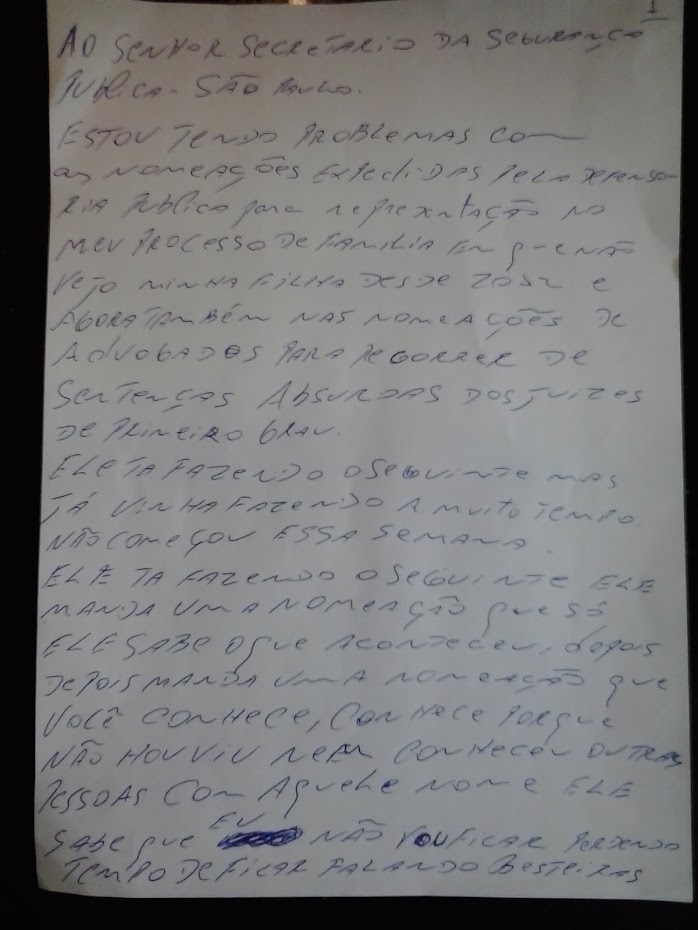 1
AO SENHOR SECRETARIO DA SEGURANÇA
PUBLICA - SÃO PAULO.
ESTOU TENDO PROBLEMAS COM
as NOMEAÇÕES EXPEdiDAS PELA DEFENSO
RIA PUBLICA para representação NO
MEU PROCESSO DE FAMILIA EM que NÃO
VEJO MINHA FILHA DESDE e
AGORA TAMBÉM NAS NOMEAÇÕES DE
ADVOGADOS PARA RECORRER DE
SENTENÇAS ABSURDAS DOS JUIZES
DE PRIMEIRO GRAU.
ELE TA FAZENDO O SEGUINTE MAS
JÁ VINHA FAZENDO A MUITO TEMPO.
NÃO COMEÇOU ESSA SEMANA.
ELE TA FAZENDO O SEGUINTE ELE
MANDA UMA NOMEAÇÃO que SÓ
ELE SABE O que ACONTECEU, depois
DEPOIS MANDA UMA NOMEAÇÃO que
VOCÊ CONHECE, CONHECE PORQUE
NÃO HOUVIU NEM CONHECEU OUTRAS
PESSOAS COM AQUELE NOME ELE
SABE que EU NÃO VOU FICAR PERDENDO
TEMPO DE FICAR FALANDO BESTEIRAS